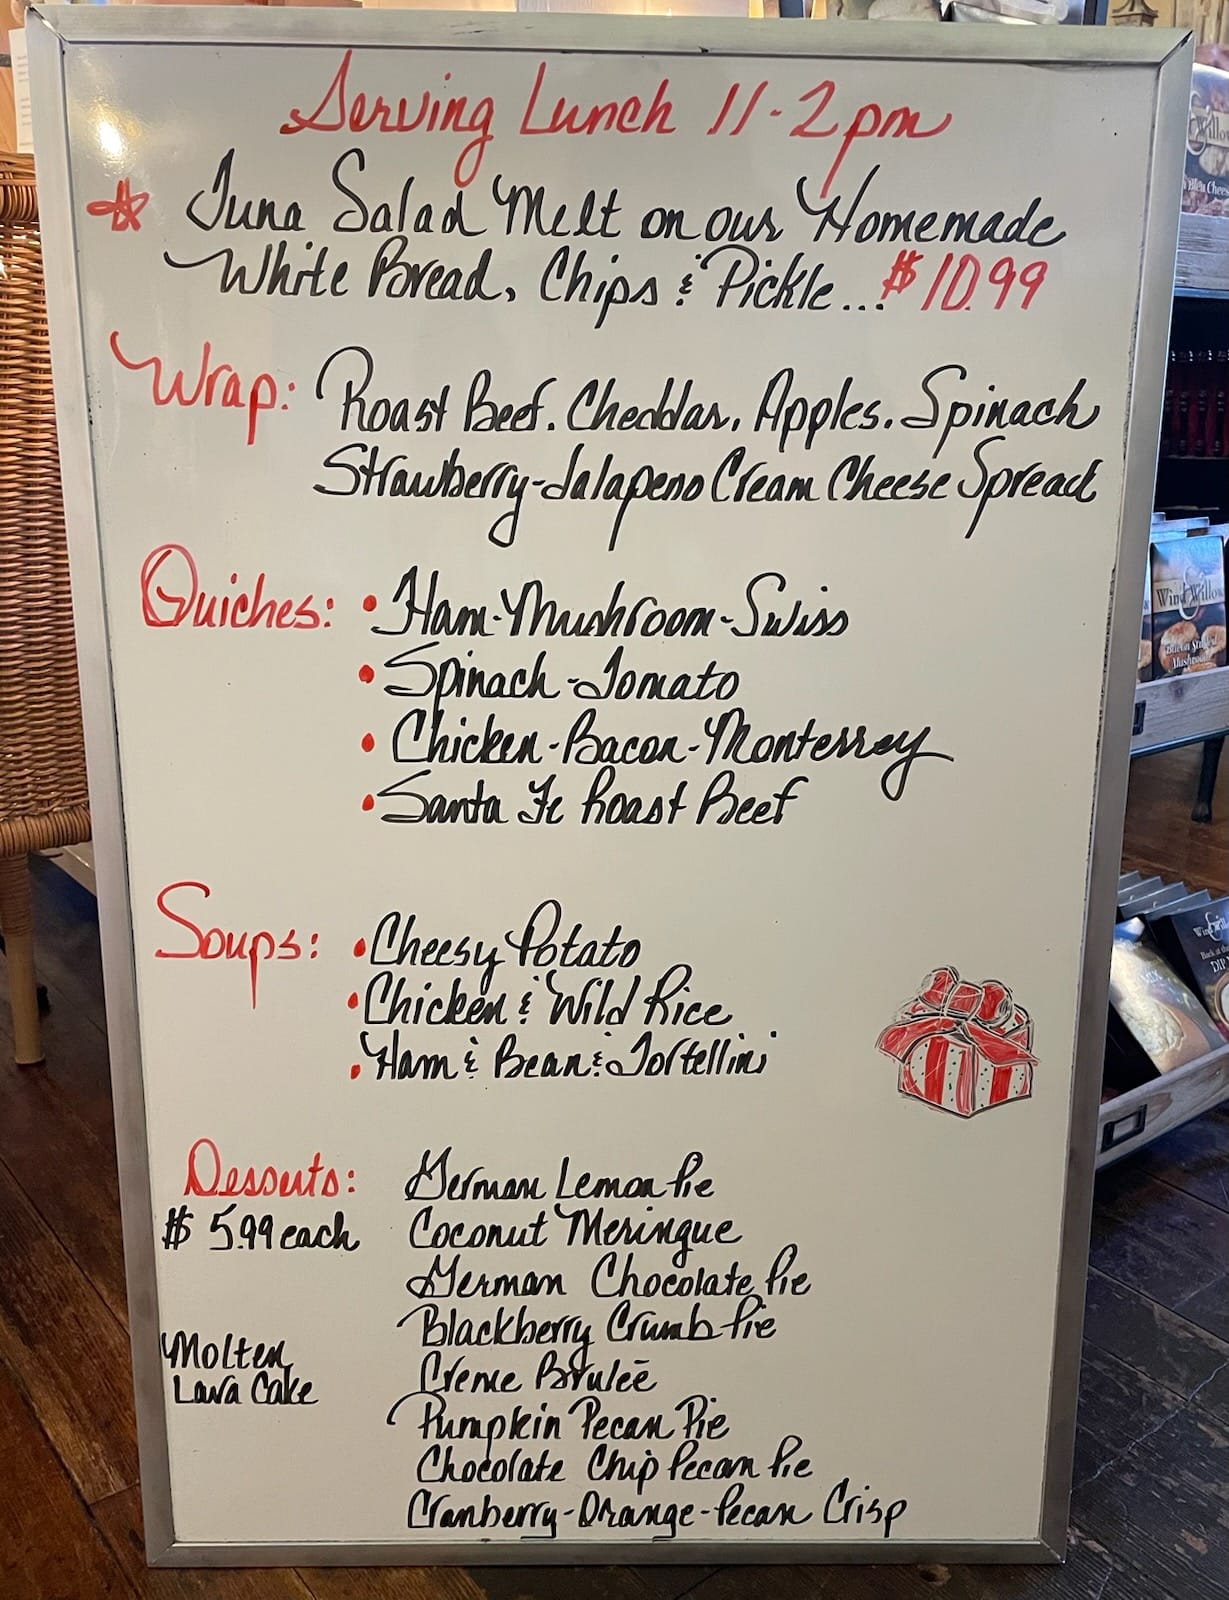 Serving Lunch 11-2pm
Tuna Salad Melt on our Homemade
White Bread, Chips & Pickle... $10.99
Wrap: Roast Beef, Cheddar, Apples, Spinach
Strawberry-Jalapeno Cream Cheese Spread
Quiches: • Ham-Mushroom-Swiss
• Spinach-Tomato
• Chicken-Bacon-Monterrey
• Santa Fe Roast Beef
Soups: • Cheesy Potato
• Chicken & Wild Rice
• Ham & Bean & Tortellini
Desserts:
$5.99 each
Molten
Lava Cake
German Lemon Pie
Coconut Meringue
German Chocolate Pie
Blackberry Crumb Pie
Creme Brulēe
Pumpkin Pecan Pie
Chocolate Chip Pecan Pie
Cranberry-Orange-Pecan Crisp
Wind & Willow